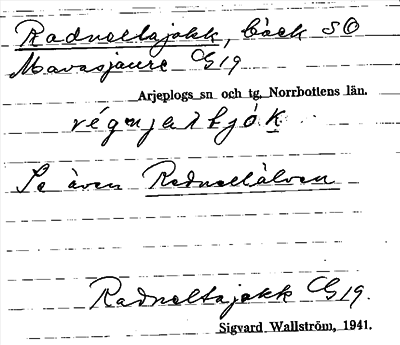 Radneltajokk, bäck SO
Mavasjaure G19
Arjeplogs sn och tg, Norrbottens län.
Se även Radneltälven
Radneltajokk G19.
Sigvard Wallström, 1941.